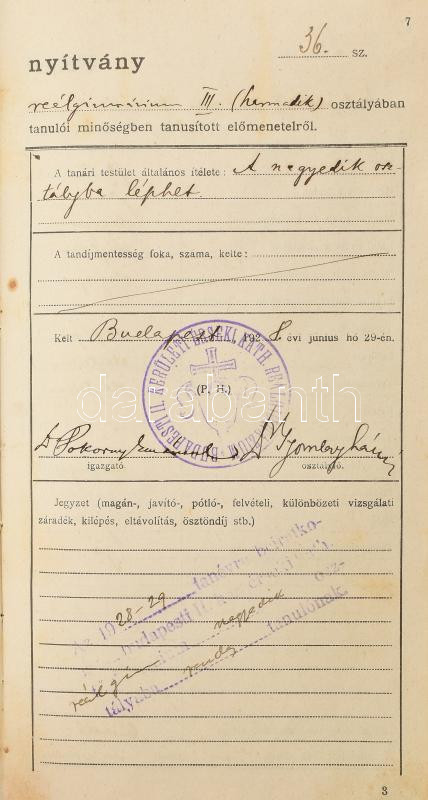 7
36. sz.
nyítvány
reélgimnázium III. (harmadik) osztályában
tanulói minőségben tanusított előmenetelről.
A tanári testület általános ítélete: A negyedik osz-
tályba léphet.
A tandíjmentesség foka, szama, kelte:
Kelt Budapest 1928. évi junius hó 29-én.
BUDAPESTI II. KERÜLETI ÉRSEKI KATH.
(P. H.)
darabanth
Dr Pokorny Dr Gombay
igazgató osztályfő.
Jegyzet (magán-, javító-, pótló-, felvételi, különbözeti vizsgálati
záradék, kilépés, eltávolítás, ösztöndíj stb.)
Az 1928-29 tanévre beiratko-
budapesti II.
reálgim negyedik osz-
tályába rendes tanulónak.
3